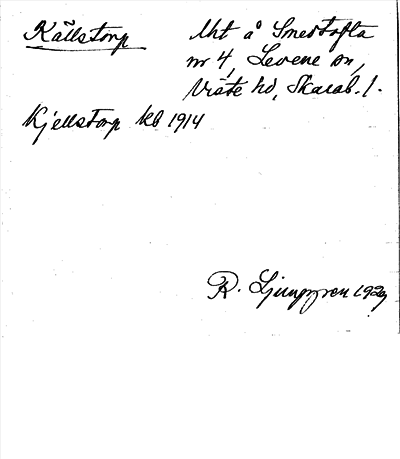 Källstorp
Lht å Smedtofta
nr 4, Levene sn,
Viste hd, Skarab. l.
Kjellstorp kb 1914
R. Ljunggren 1929